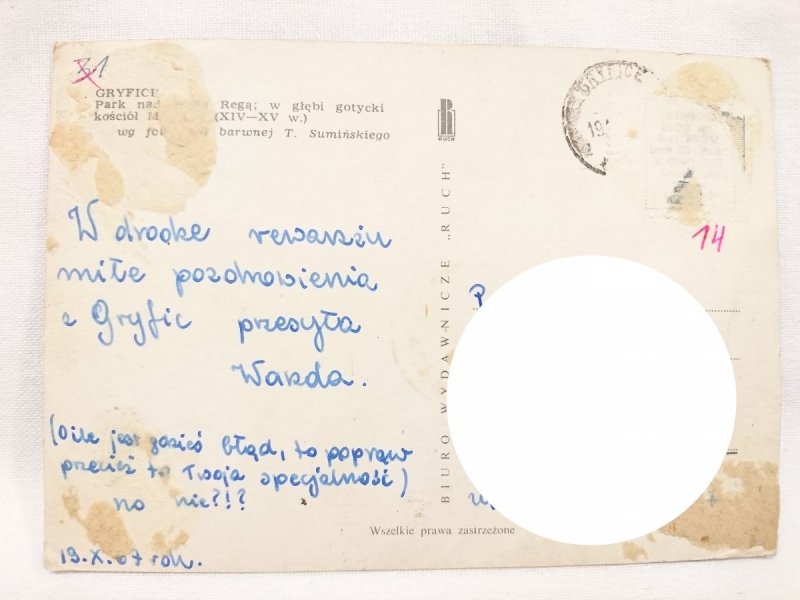 31
GRYFICE
Park nad Regą; w głębi gotycki
kościół M (XIV—XV w.)
wg fo barwnej T. Sumińskiego
RUCH
GRYFICE
19.
14
W drodke rewanżu
miłe pozdrowienia
z Gryfic przesyła
Wanda.
(O ile jest gdzieś błąd, to popraw
przecież to Twoja specjalność)
no nie?!?
19.X.67 rok.
BIURO WYDAWNICZE „RUCH"
P
Wszelkie prawa zastrzeżone